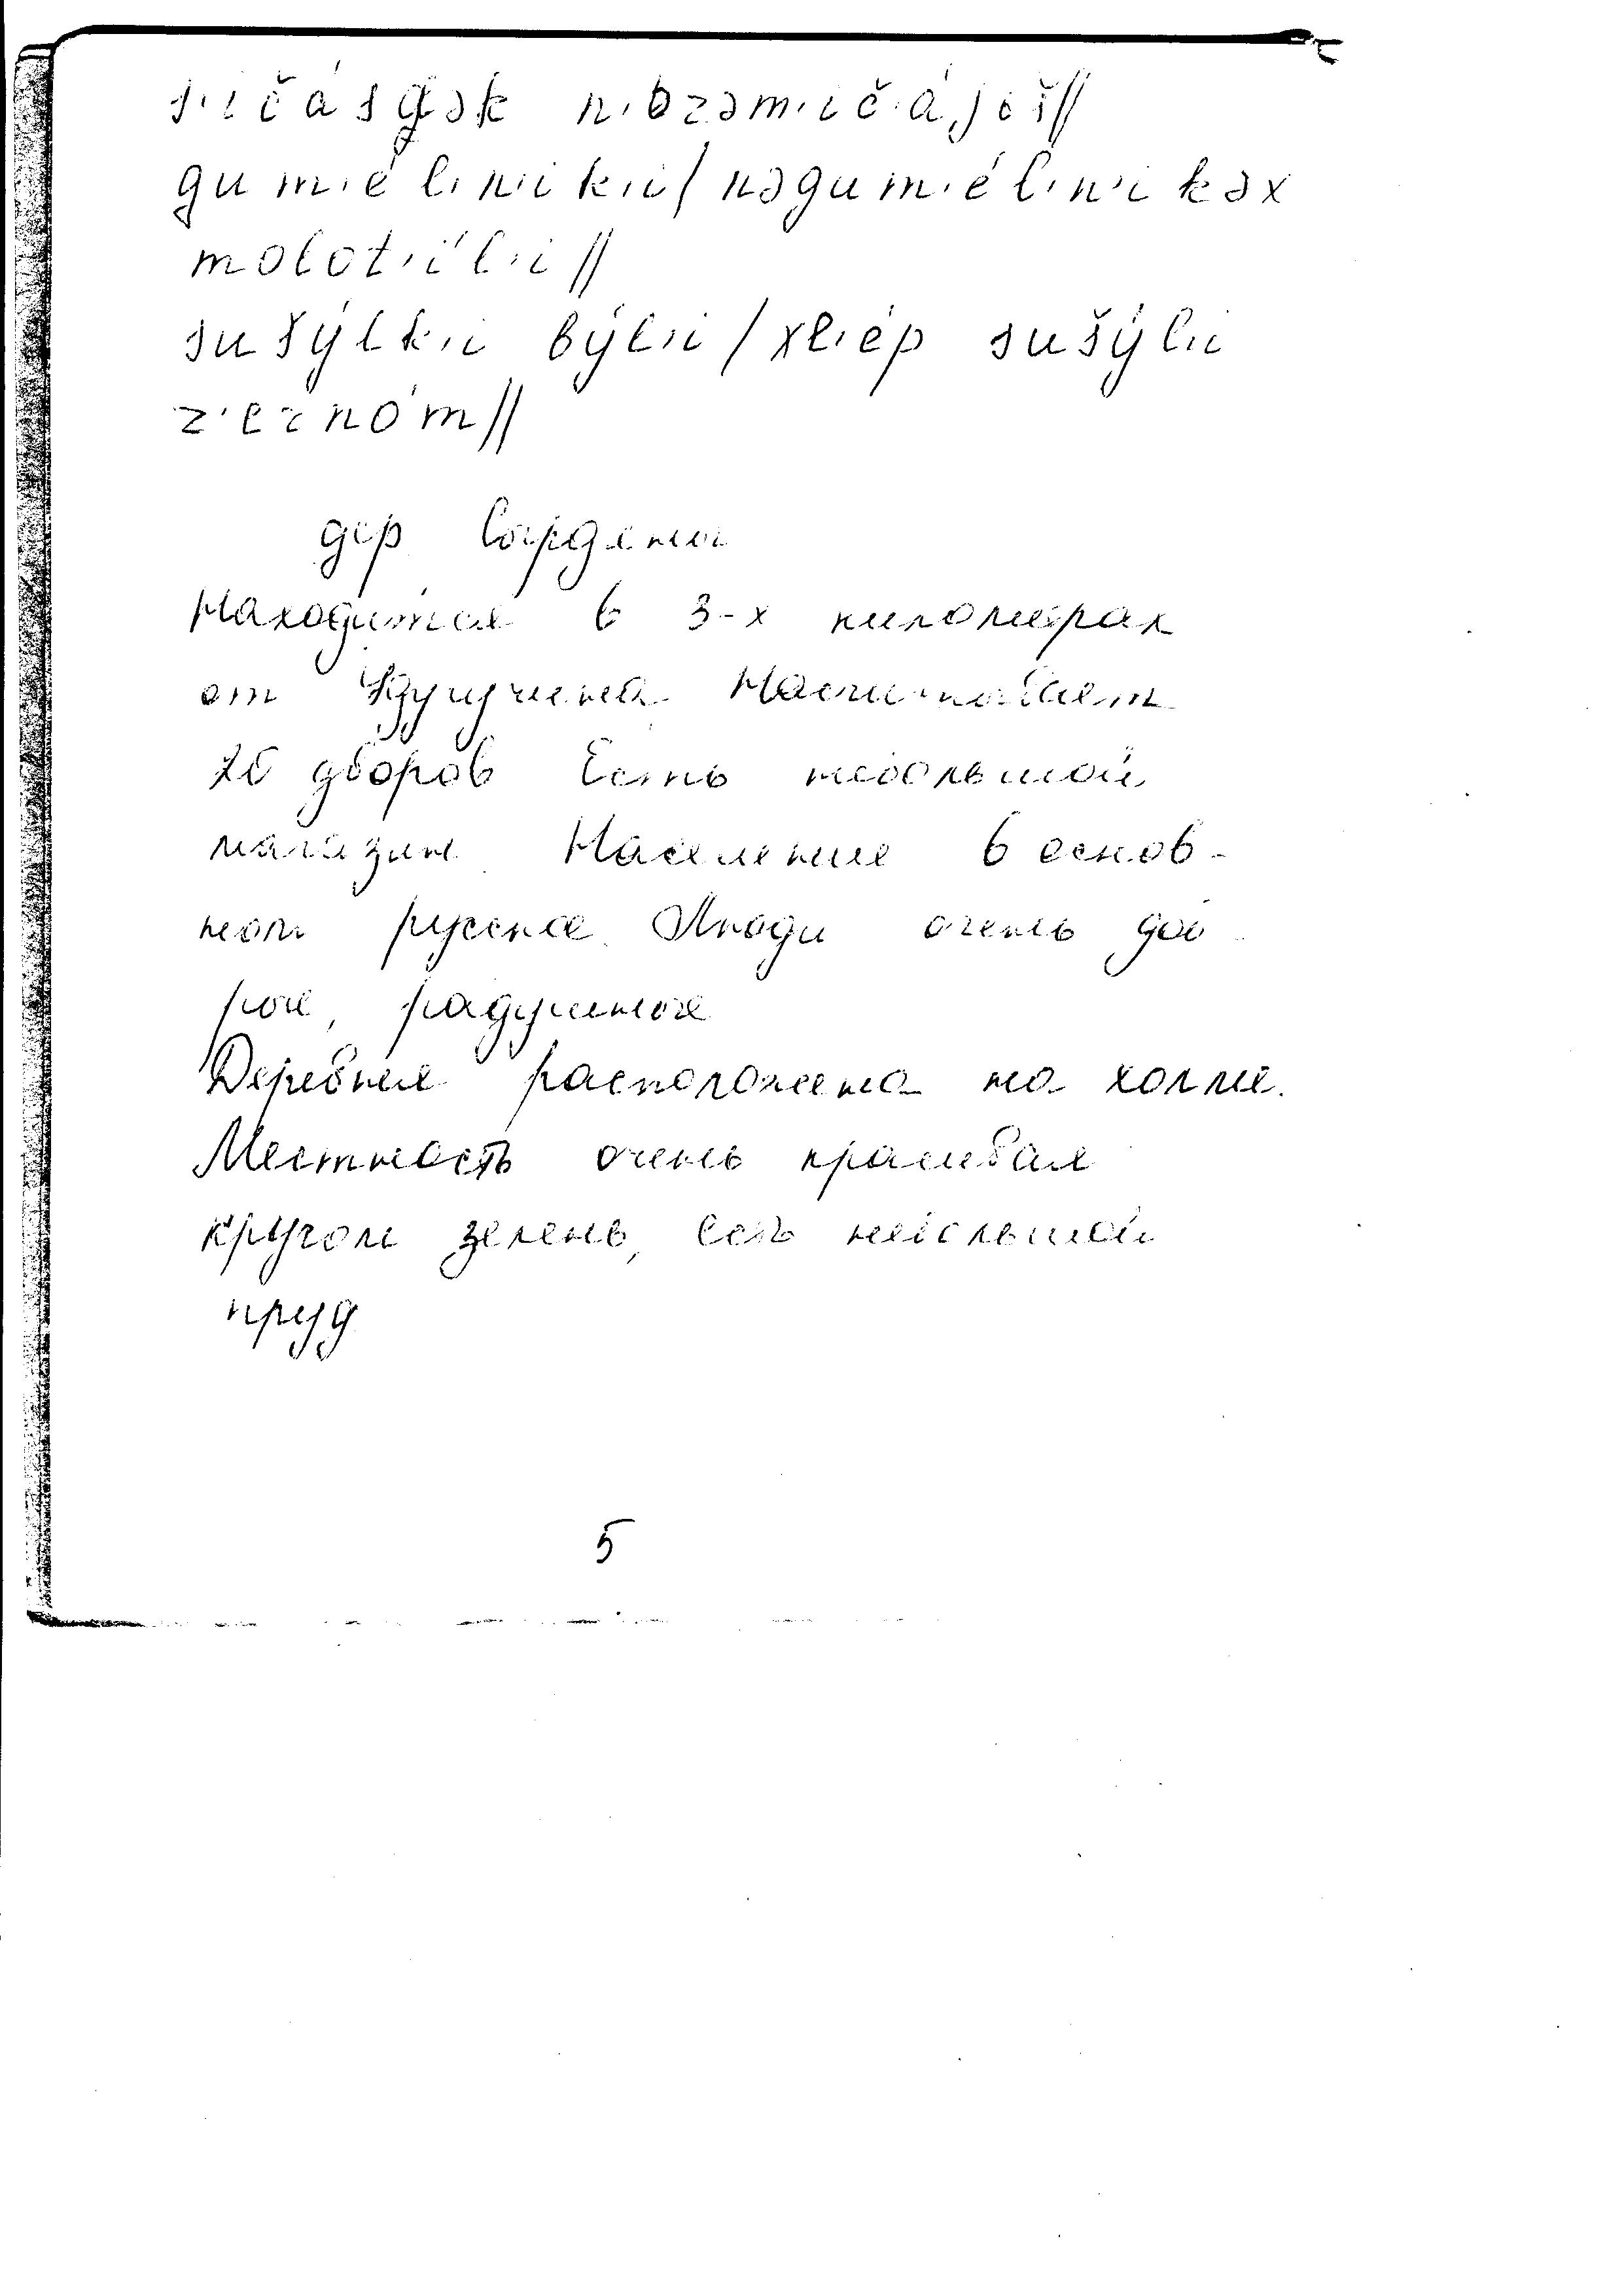 s'ičás gək n'ьzəm'ič'ájеš//
gum'él'n'ik'i/nəgum'el'n'ikəx
molot'íl'i//
sušýlk'i býl'i/xl'ép sušýl'i
z'ernóm//
дер.
Находится в 3-х километрах
от Насчитывает
20 дворов Есть небольшой
магазин Население в основ-
ном русское Люди очень доб-
рые, радушные
Деревня расположена на холме.
Местность очень красивая
кругом зелень, есть небольшой
пруд
5